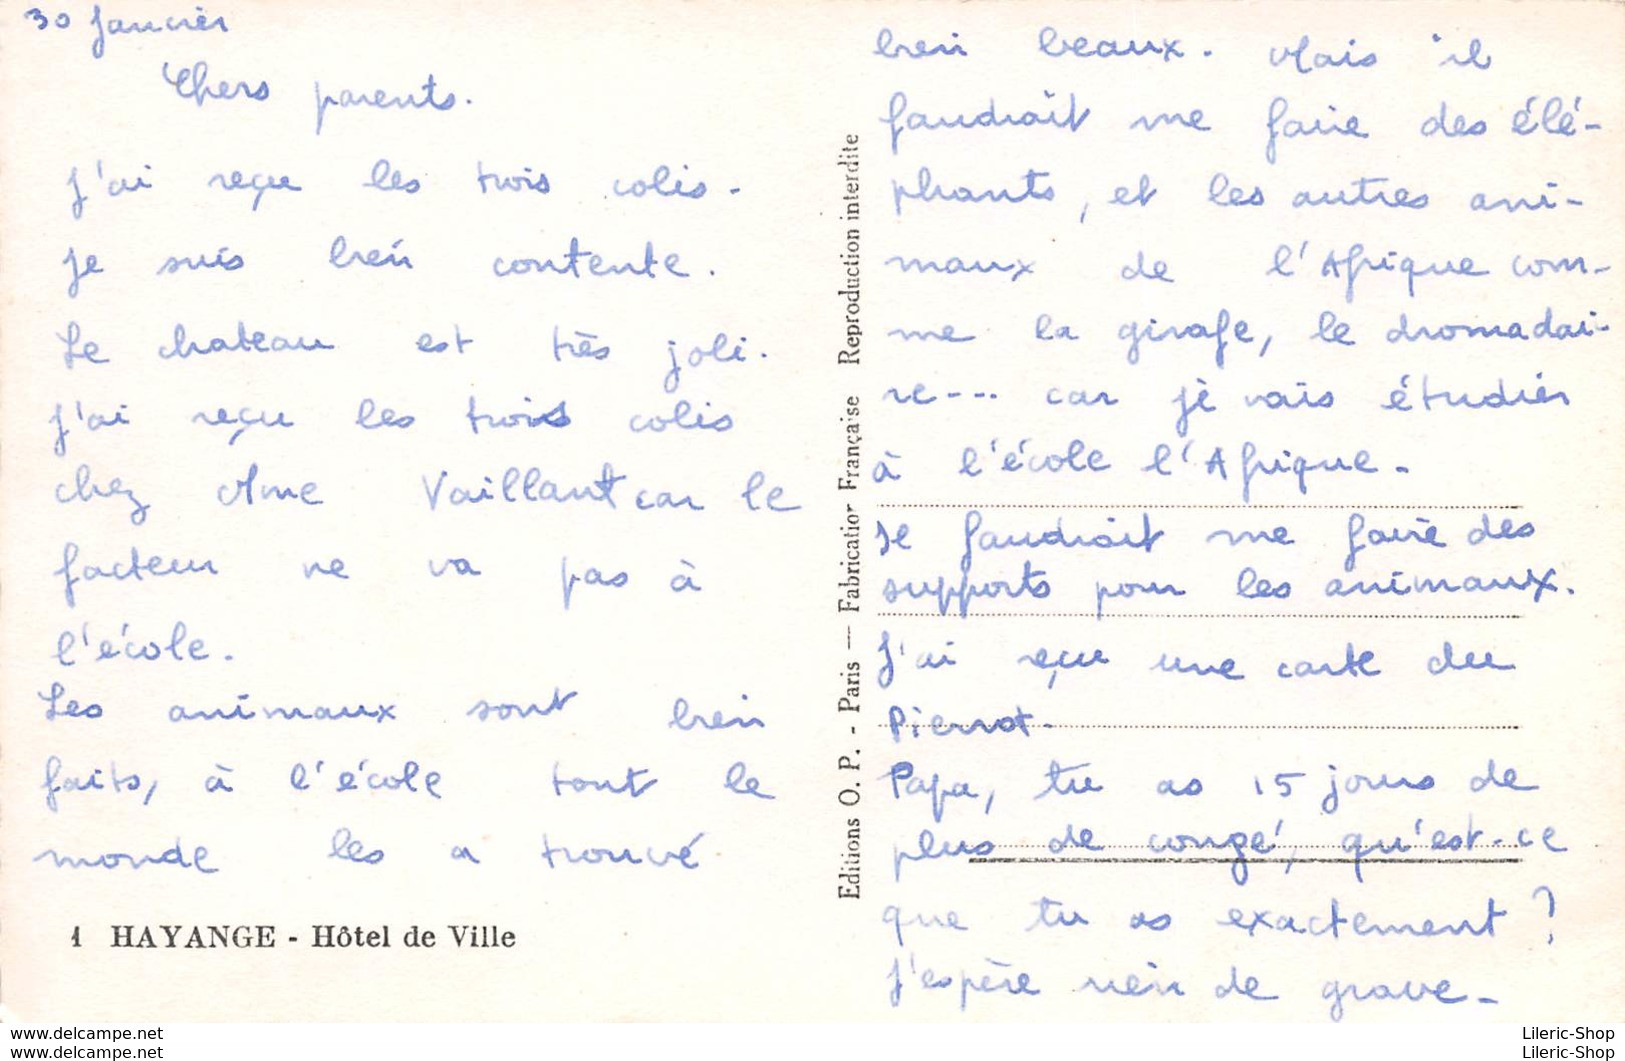 30 Janvier
Chers parents.
J'ai reçu les trois colis.
Je suis bien contente.
Le chateau est très joli.
J'ai reçu les trois colis
chez Mme Vaillant car le
facteur ne va pas à
l'école.
Les animaux sont bien
faits, à l'école tout le
monde les a trouvé
1 HAYANGE - Hôtel de Ville
Editions O. P. - Paris — Fabrication Française Reproduction interdite
bien beaux. Mais il
faudrait me faire des élé-
phants, et les autres ani-
maux de l'Afrique com-
me la girafe, le dromadai-
re--- car je vais étudier
à l'école l'Afrique.
Il faudrait me faire des
supports pour les animaux.
J'ai reçu une carte du
Pierrot.
Papa, tu as 15 jours de
plus de congé, qu'est-ce
que tu as exactement ?
J'espère rien de grave.
www.delcampe.net
www.delcampe.net
Lileric-Shop
Lileric-Shop